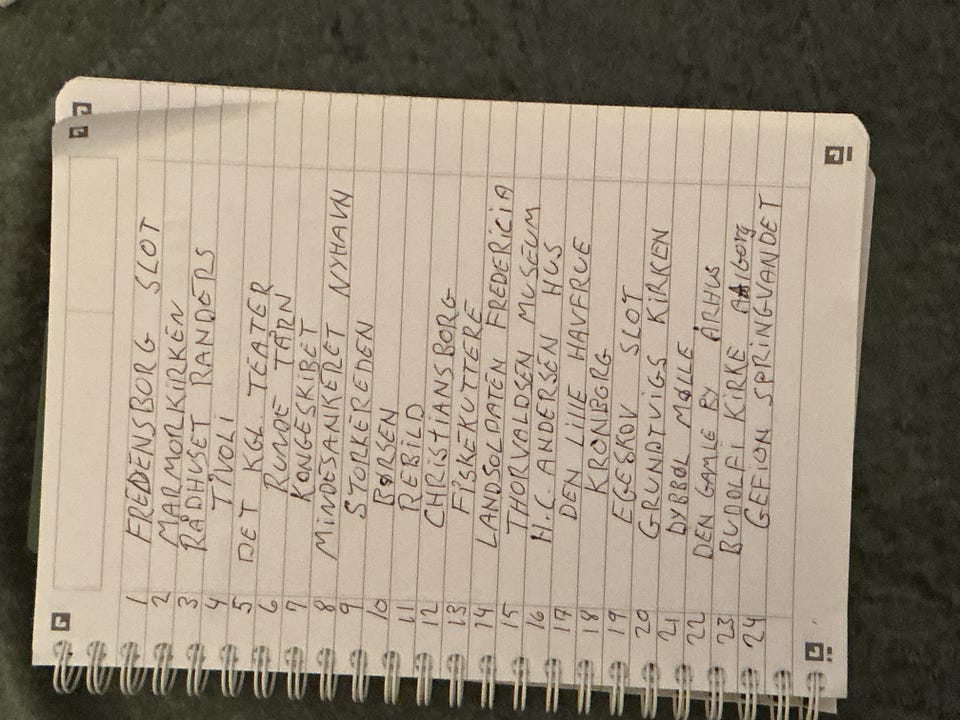 1 FREDENSBORG SLOT
2 MARMORKIRKEN
3 RÅDHUSET RANDERS
4 TIVOLI
5 DET KGL TEATER
6 RUNDE TÅRN
7 KONGESKIBET
8 MINDESANKERET NYHAVN
9 STORKEREDEN
10 BØRSEN
11 REBILD
12 CHRISTIANSBORG
13 FISKEKUTTERE
14 LANDSOLDATEN FREDERICIA
15 THORVALDSEN MUSEUM
16 H.C. ANDERSEN HUS
17 DEN LILLE HAVFRUE
18 KRONBORG
19 EGESKOV SLOT
20 GRUNDTVIGS KIRKEN
21 DYBBØL MØLLE
22 DEN GAMLE BY ÅRHUS
23 BUDOLFI KIRKE AAlborg
24 GEFION SPRINGVANDET